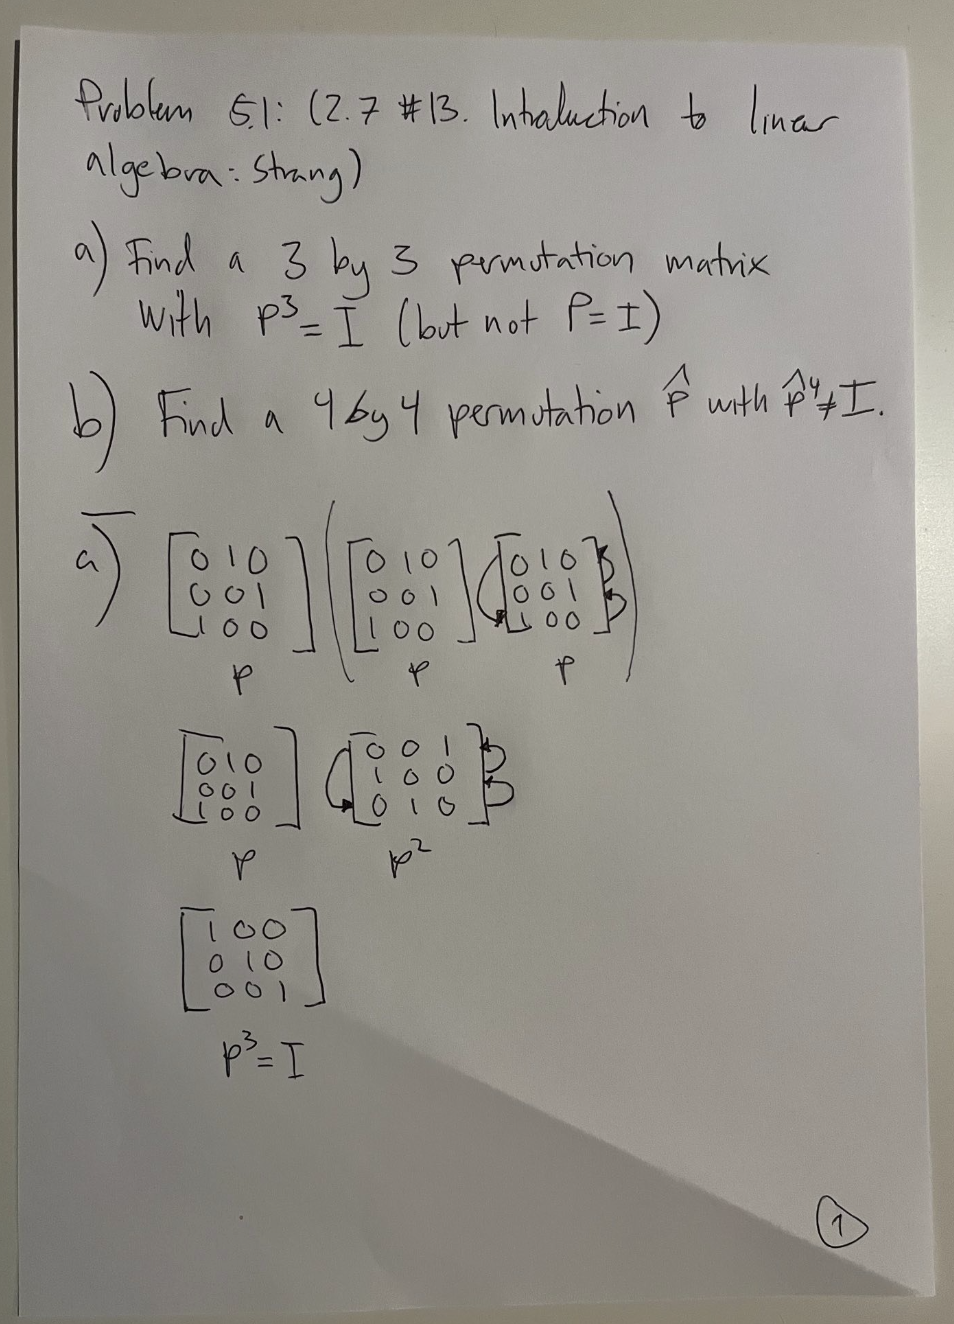 Problem 5.1: (2.7 #13. Introduction to linear
algebra: Strang)
a) Find a 3 by 3 permutation matrix
with P³ = I (but not P = I)
b) Find a 4 by 4 permutation P̂ with P̂⁴ ≠ I.
a) [0 1 0 ( [0 1 0] [0 1 0]
0 0 1 0 0 1 0 0 1
1 0 0] 1 0 0 1 0 0 )
P P P
[0 1 0] [0 0 1]
0 0 1 1 0 0
1 0 0 0 1 0
P P²
[1 0 0]
0 1 0
0 0 1
P³ = I
1